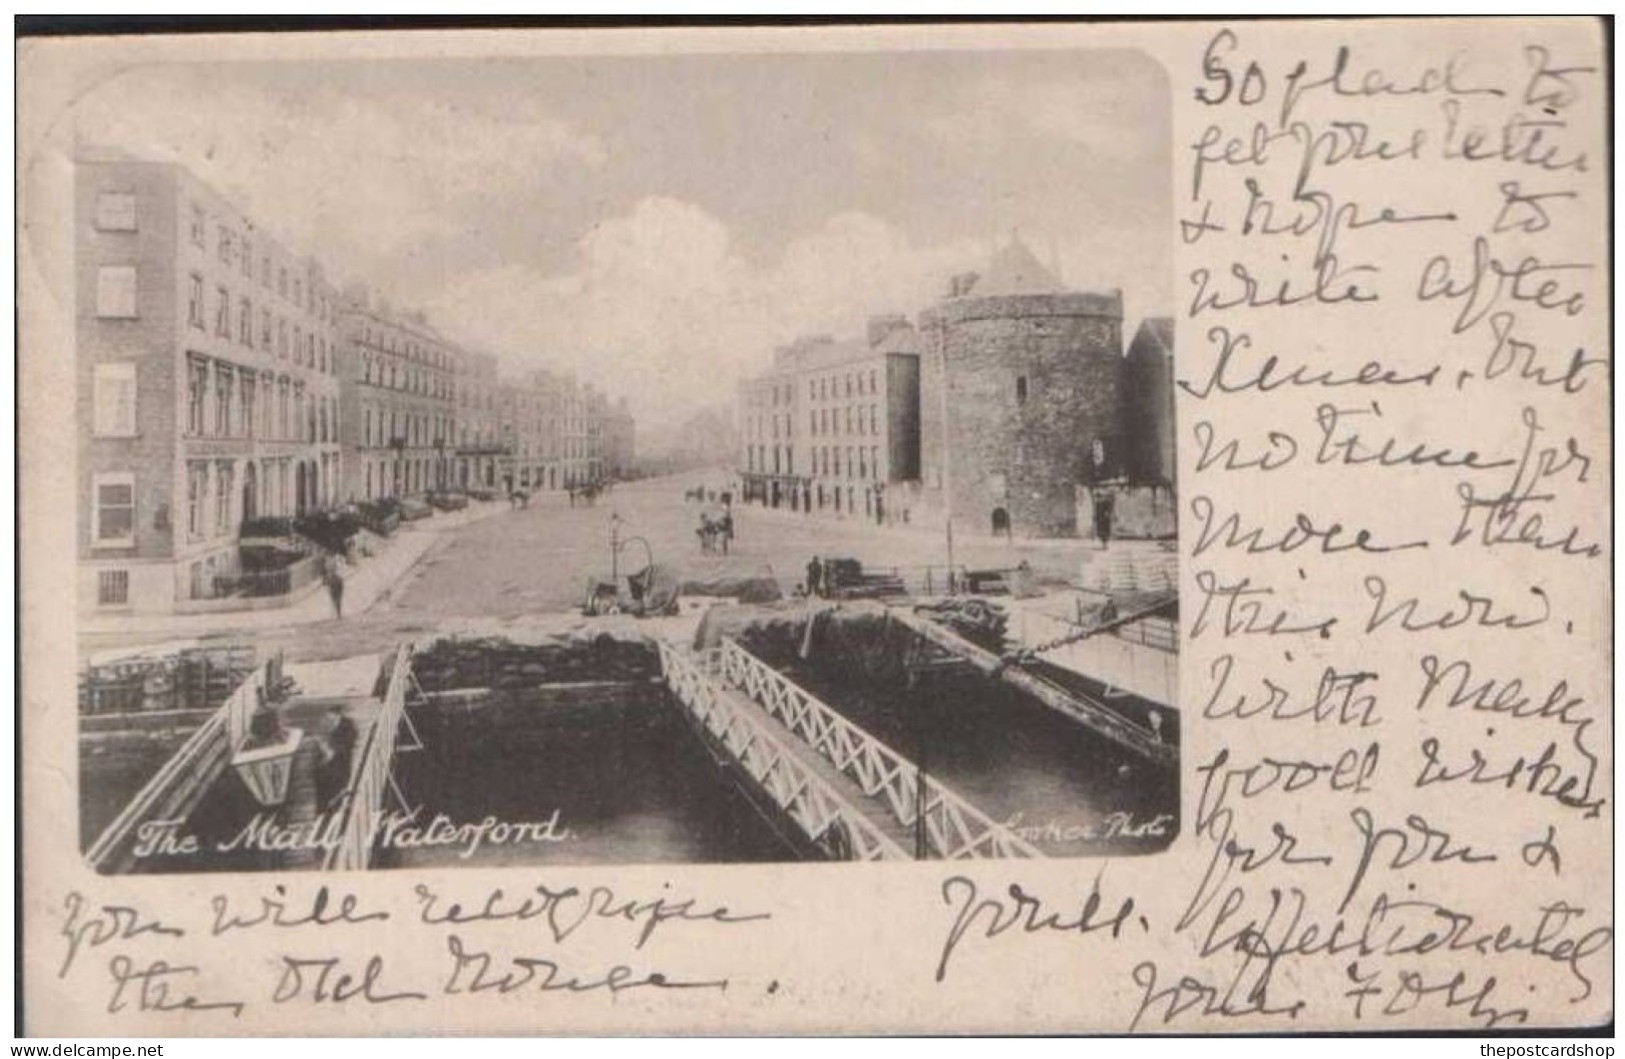 So glad to
get your letter
& hope to
write after
Xmas. but
no time for
more than
this now.
With many
good wishes
for you &
yours.
Affectionately
yours
The Mall Waterford.
Photo
You will recognise
the old house.
Delcampe.net
thepostcardshop